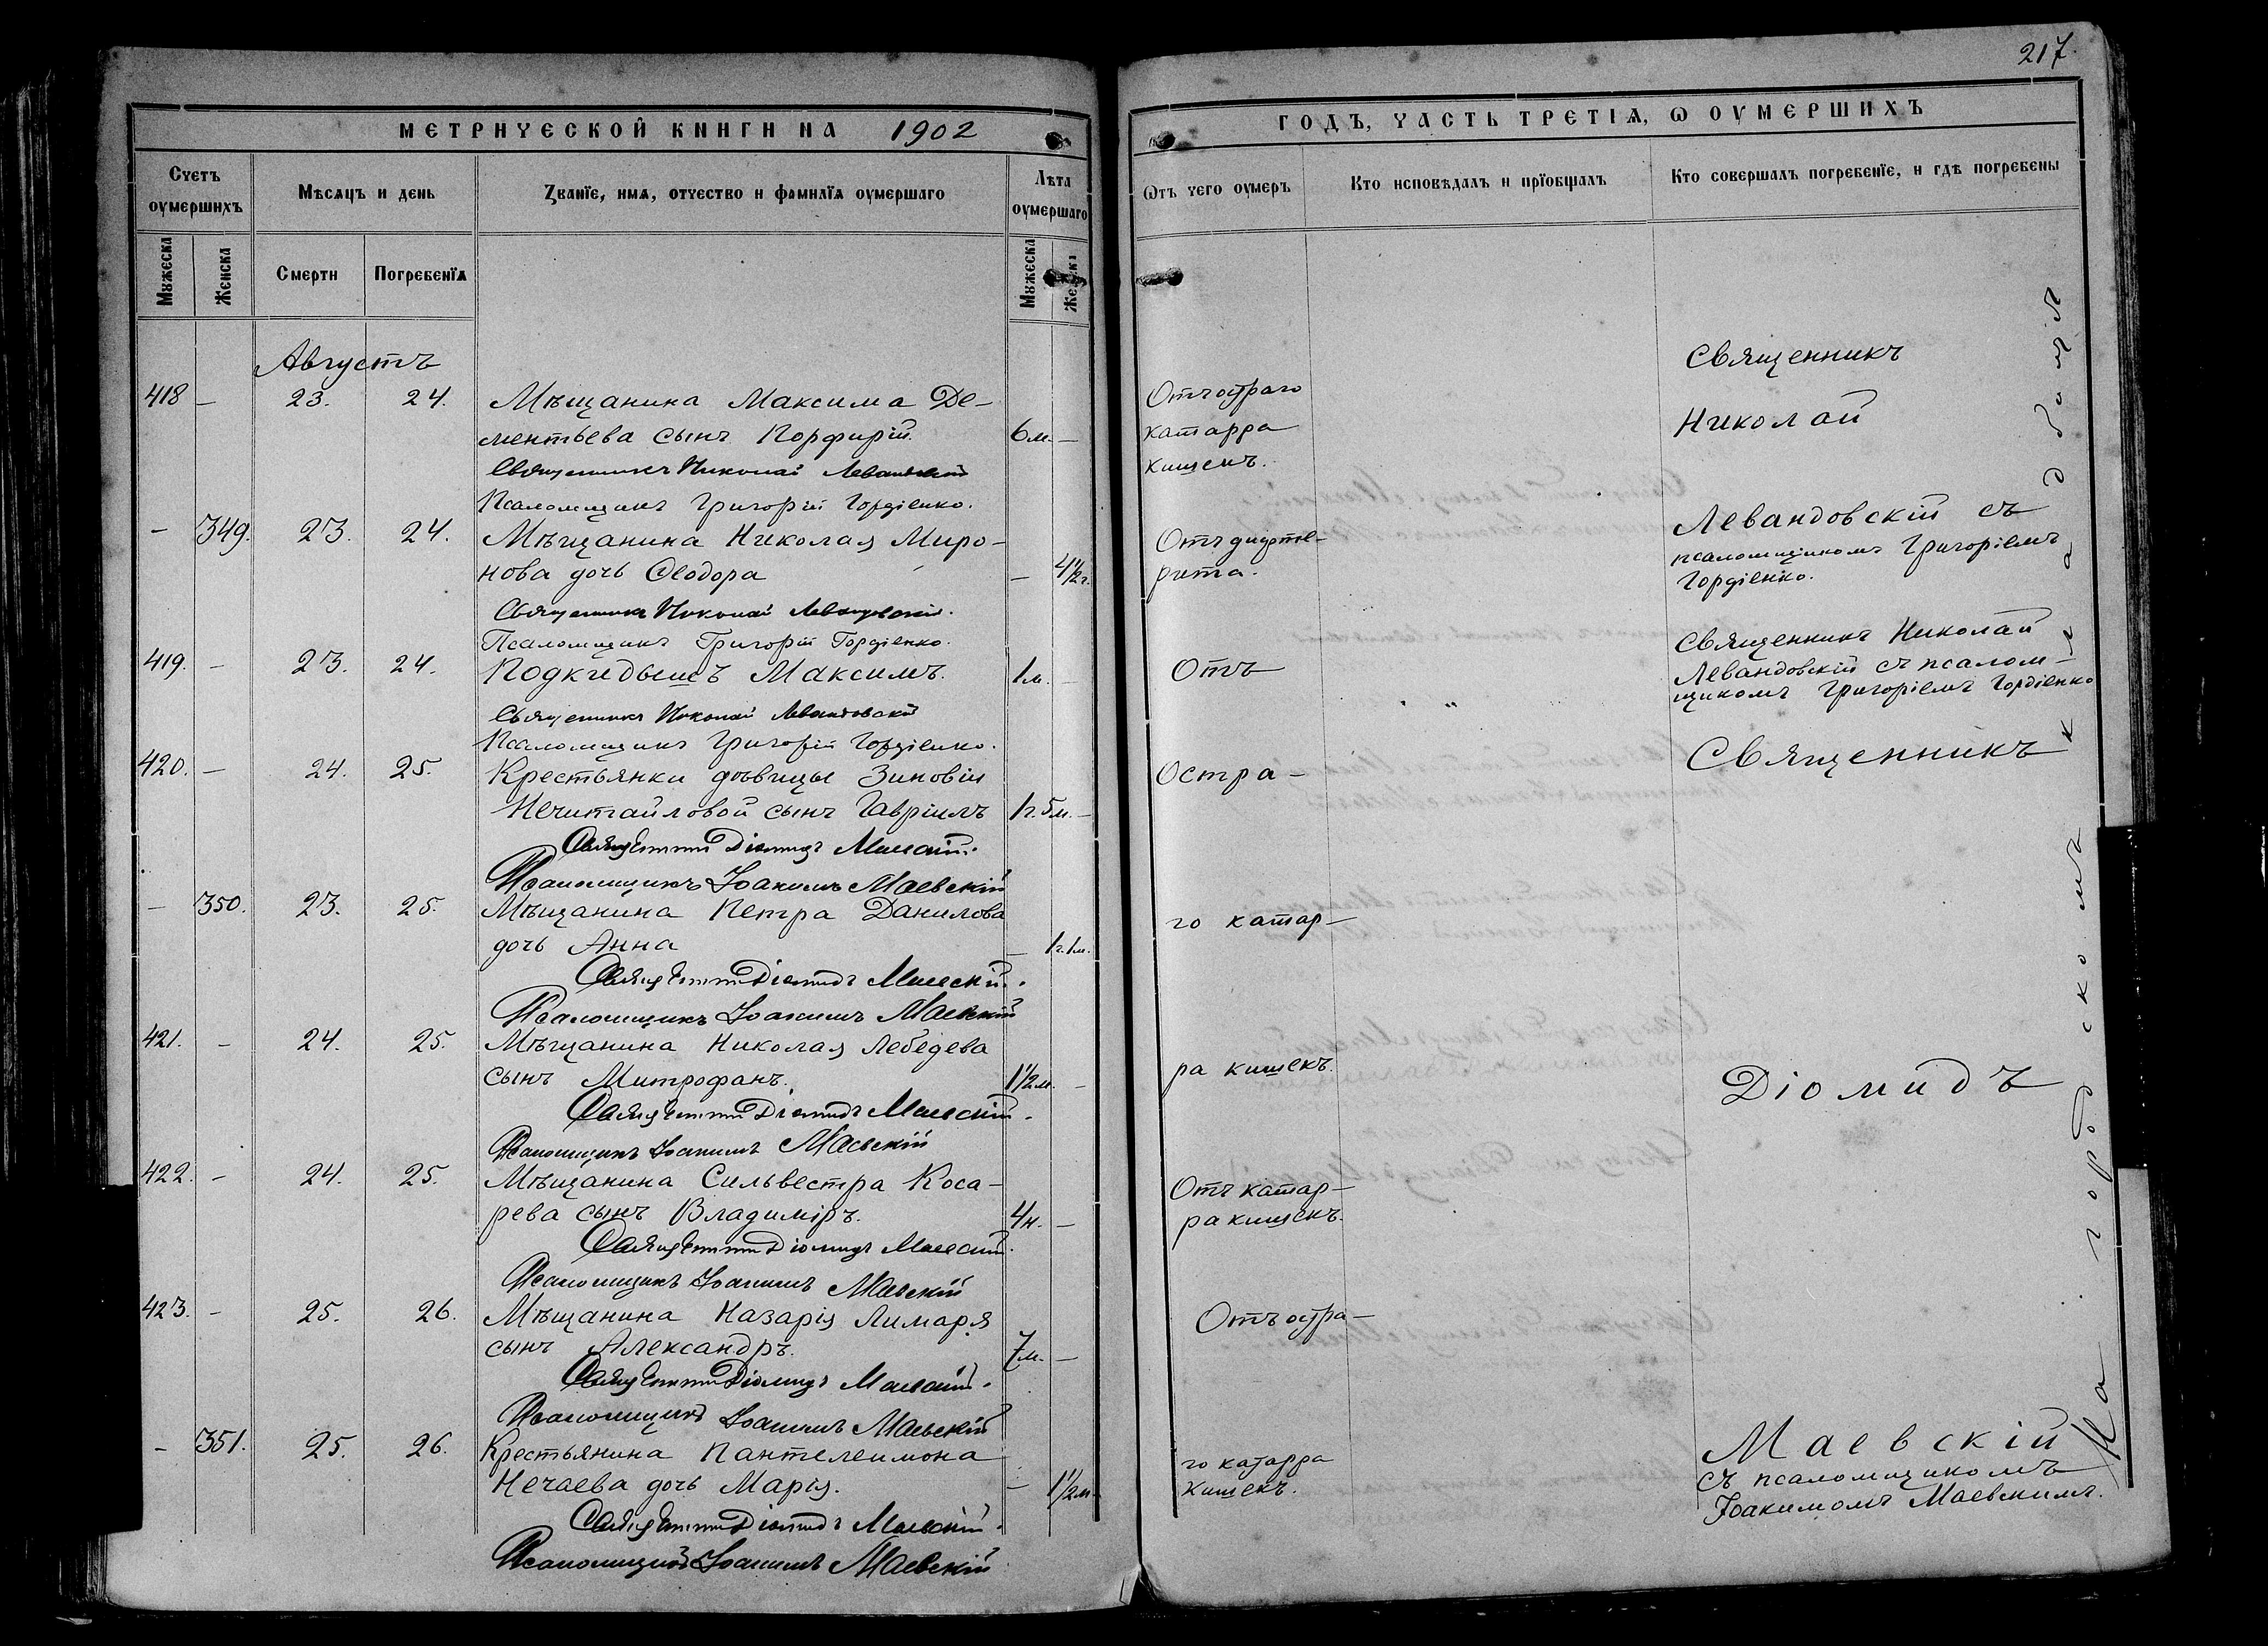 217.
МЕТРИЧЕСКОЙ КНИГИ НА 1902
Счетъ оумершихъ
Мѣсяцъ и день
Званіе, имя, отчество и фамилія оумершаго
Лѣта оумершаго
Мужеска
Женска
Смерти
Погребенія
Мужеска
Женска
Августъ
418 – 23. 24. Мѣщанина Максима Де-
ментьева сынъ Порфирій. 6 м. –
Священникъ Николай Левандовскій
Псаломщикъ Григорій Гордіенко.
– 349. 23. 24. Мѣщанина Николая Миро-
нова дочь Ѳеодора – 4 1/2 г.
Священникъ Николай Левандовскій.
Псаломщикъ Григорій Гордіенко.
419. – 23. 24. Подкидышъ Максимъ. 1 м. –
Священникъ Николай Левандовскій
Псаломщикъ Григорій Гордіенко.
420. – 24. 25. Крестьянки дѣвицы Зиновіи
Нечитайловой сынъ Гавріилъ 1 г. 5 м. –
Священникъ Діомидъ Маевскій.
Псаломщикъ Іоакимъ Маевскій
– 350. 23. 25. Мѣщанина Петра Данилова
дочь Анна – 1 г. 1 м.
Священникъ Діомидъ Маевскій.
Псаломщикъ Іоакимъ Маевскій
421. – 24. 25. Мѣщанина Николая Лебедева
сынъ Митрофанъ. 1 1/2 м. –
Священникъ Діомидъ Маевскій.
Псаломщикъ Іоакимъ Маевскій
422. – 24. 25. Мѣщанина Сильвестра Коса-
рева сынъ Владиміръ. 4 н. –
Священникъ Діомидъ Маевскій.
Псаломщикъ Іоакимъ Маевскій
423. – 25. 26. Мѣщанина Назарія Лимаря
сынъ Александръ. 7 м. –
Священникъ Діомидъ Маевскій.
Псаломщикъ Іоакимъ Маевскій
– 351. 25. 26. Крестьянина Пантелеимона
Нечаева дочь Марія. – 1 1/2 м.
Священникъ Діомидъ Маевскій.
Псаломщикъ Іоакимъ Маевскій
ГОДЪ, ЧАСТЬ ТРЕТІЯ, Ѡ ОУМЕРШИХЪ
Ѿтъ чего оумеръ
Кто исповѣдалъ и пріобщалъ
Кто совершалъ погребеніе, и гдѣ погребены
Отъ остраго
катарра
кишекъ.
Отъ дифте-
рита.
Отъ
остра-
го катар-
ра кишекъ.
Отъ катар-
ра кишекъ.
Отъ остра-
го катарра
кишекъ.
Священникъ
Николай
Левандовскій съ
псаломщикомъ Григоріемъ
Гордіенко.
Священникъ Николай
Левандовскій съ псалом-
щикомъ Григоріемъ Гордіенко
Священникъ
Діомидъ
Маевскій
съ псаломщикомъ
Іоакимомъ Маевскимъ.
На городскомъ кладбищѣ